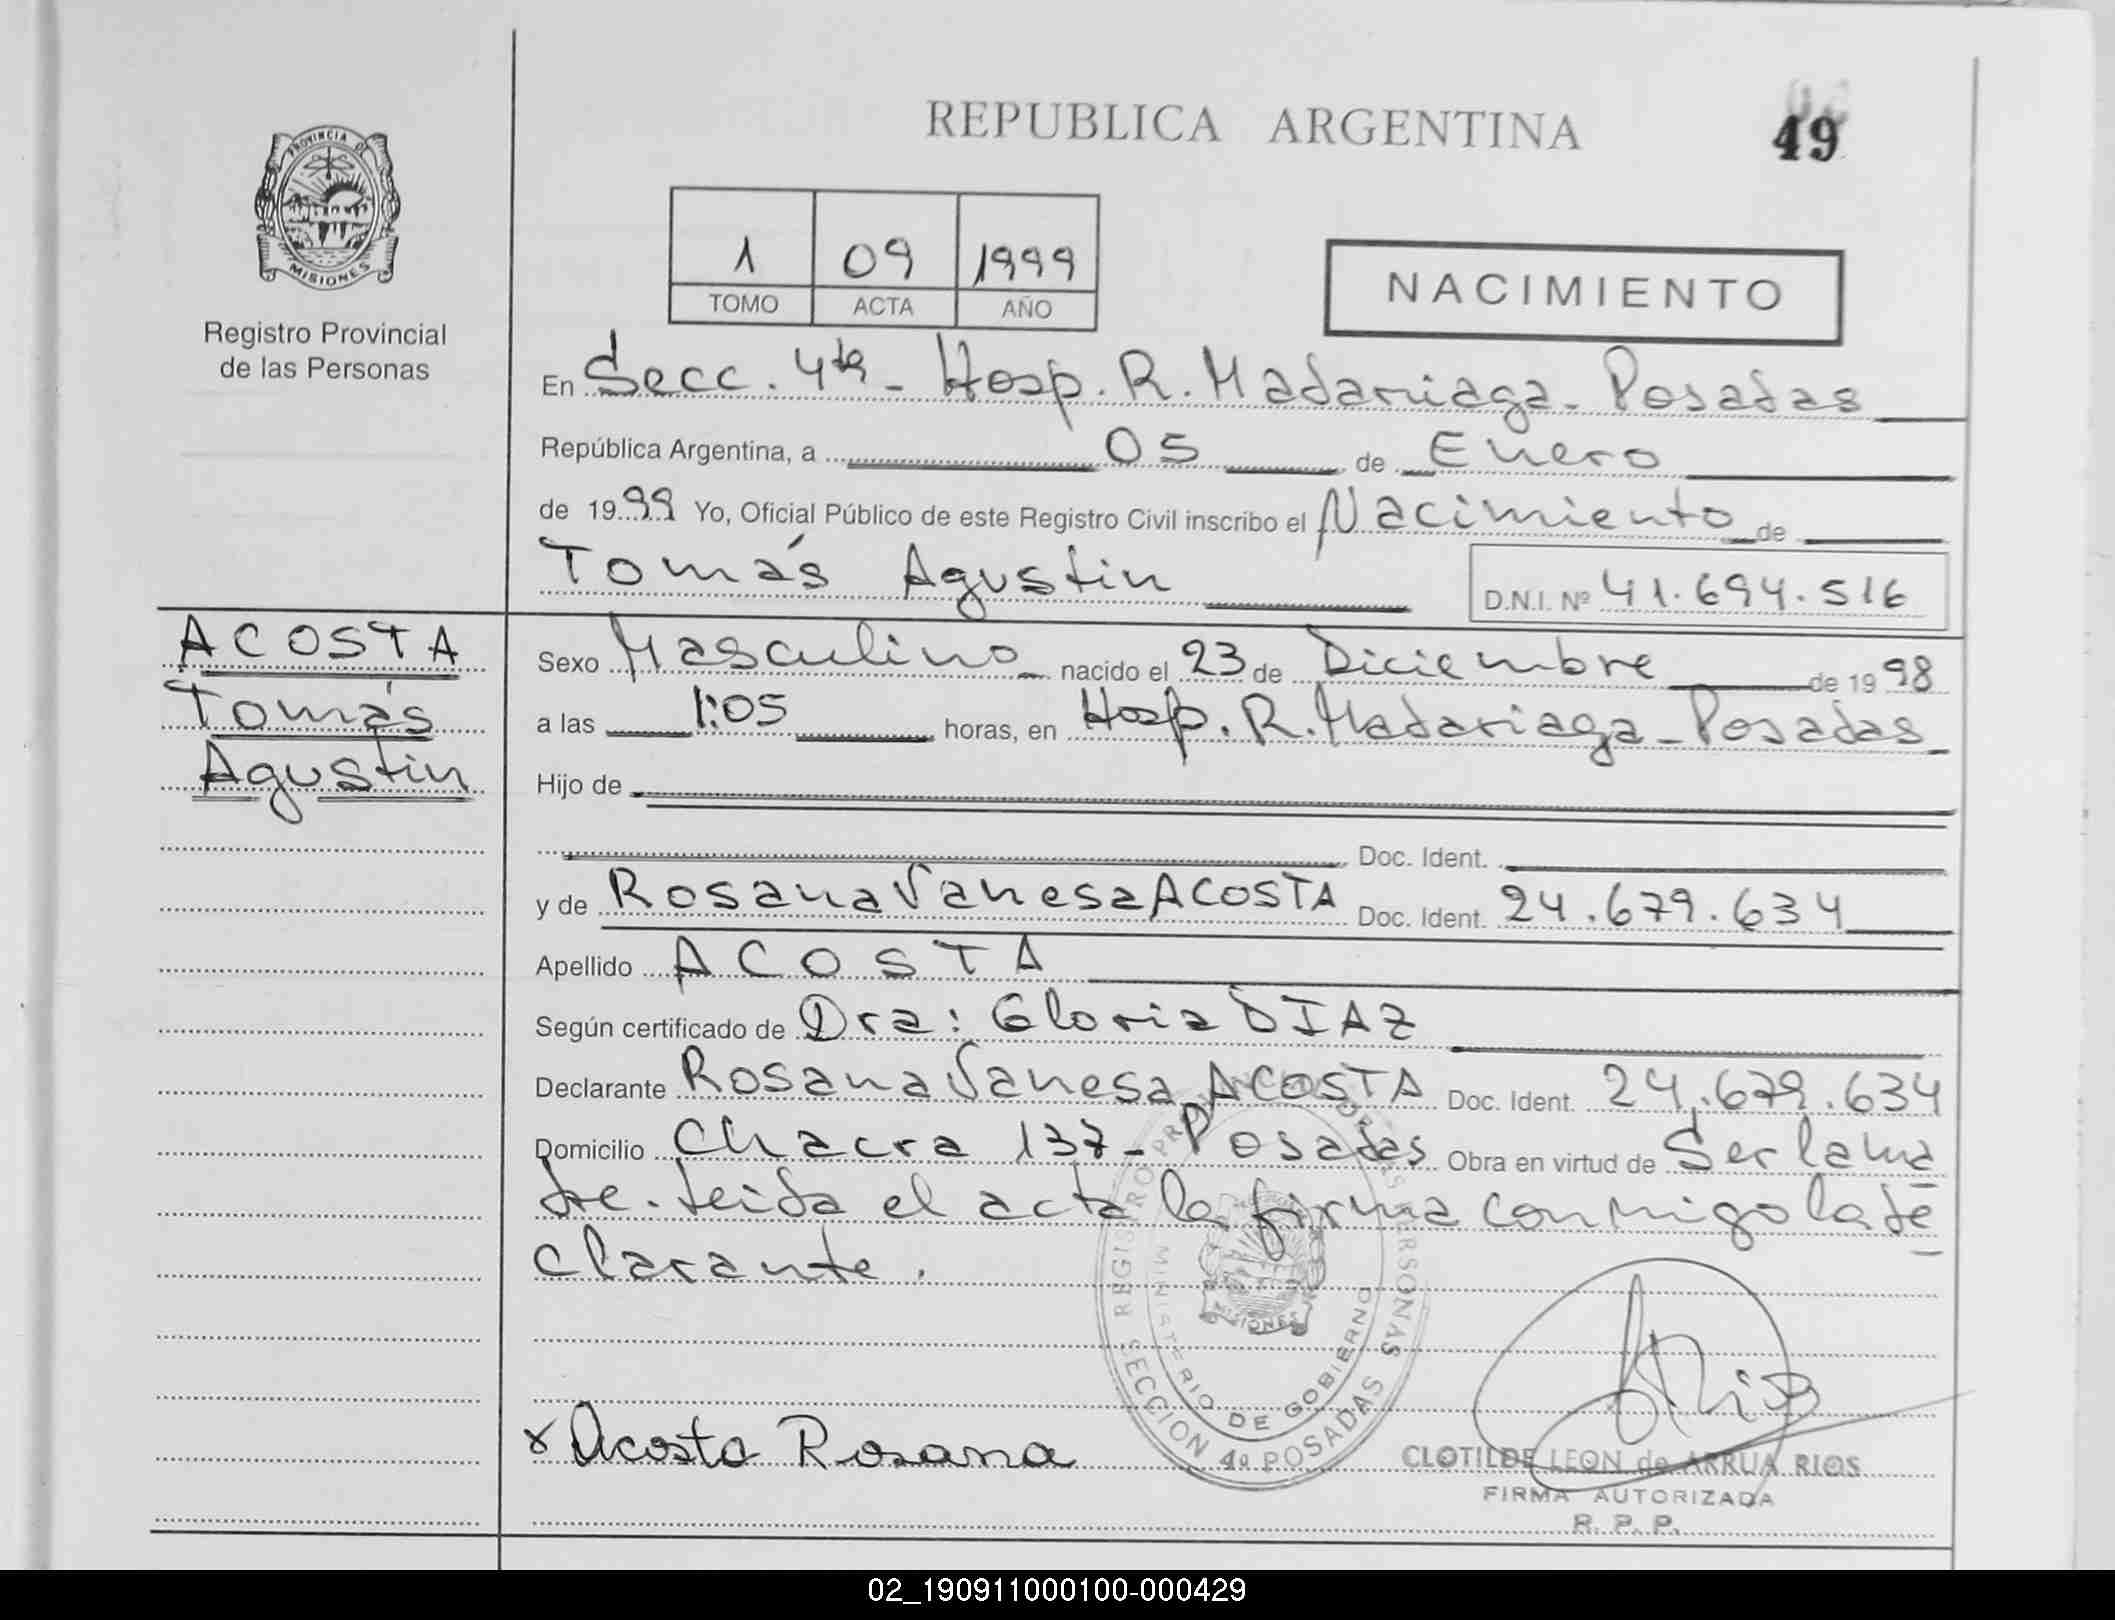 REPUBLICA ARGENTINA
49
PROVINCIA DE
MISIONES
Registro Provincial
de las Personas
1 09 1999
TOMO ACTA AÑO
NACIMIENTO
En Secc. 4ta - Hosp. R. Madariaga - Posadas
República Argentina, a 05 de Enero
de 1999 Yo, Oficial Público de este Registro Civil inscribo el Nacimiento de
Tomás Agustin D.N.I. Nº 41.694.516
ACOSTA
Tomás
Agustin
Sexo Masculino nacido el 23 de Diciembre de 1998
a las 1:05 horas, en Hosp. R. Madariaga - Posadas
Hijo de
Doc. Ident.
y de Rosana Vanesa ACOSTA Doc. Ident. 24.679.634
Apellido ACOSTA
Según certificado de Dra: Gloria DIAZ
Declarante Rosana Vanesa ACOSTA Doc. Ident. 24.679.634
Domicilio Chacra 137 - Posadas Obra en virtud de Ser la ma
dre. Leida el acta la firma conmigo la de
clarante.
REGISTRO PROVINCIAL DE LAS PERSONAS
MINISTERIO DE GOBIERNO
SECCION 4a POSADAS
x Acosta Rosana
CLOTILDE LEON de ARRUA RIOS
FIRMA AUTORIZADA
R. P. P.
02_190911000100-000429